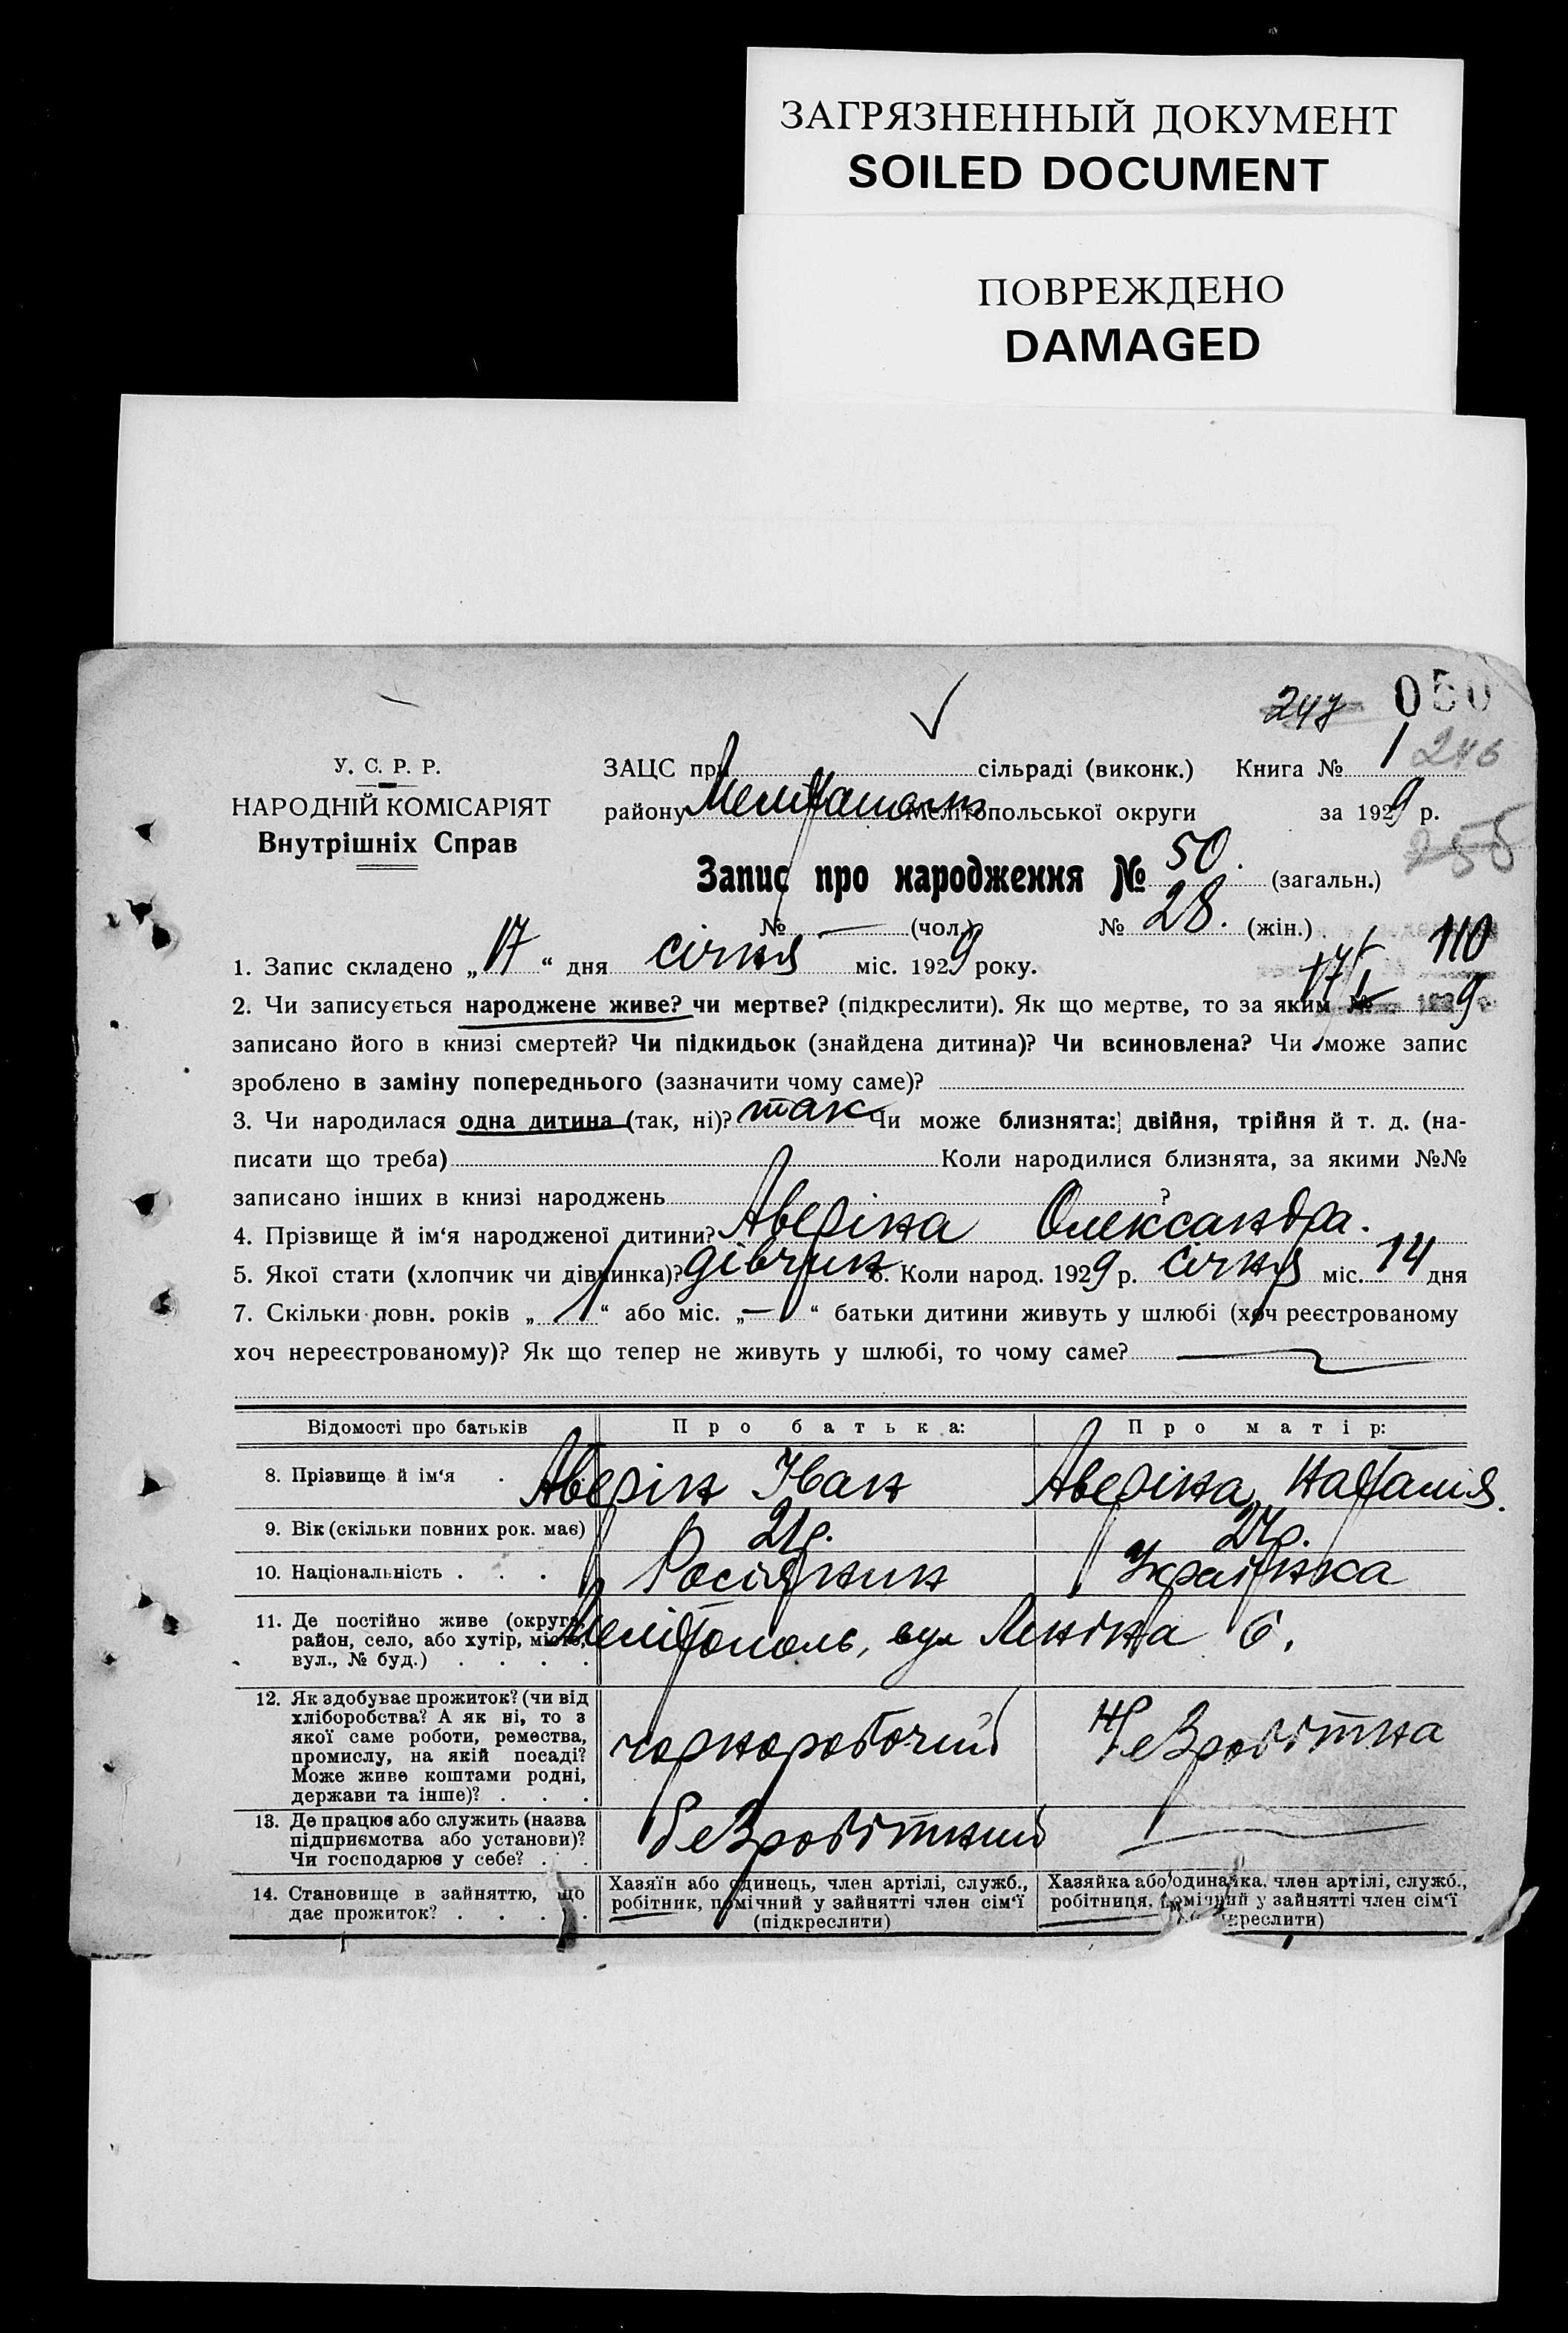 ЗАГРЯЗНЕННЫЙ ДОКУМЕНТ
SOILED DOCUMENT
ПОВРЕЖДЕНО
DAMAGED
247 050
У. С. Р. Р.
НАРОДНІЙ КОМІСАРІЯТ
Внутрішніх Справ
ЗАЦС при сільраді (виконк.) Книга № 1 246
району Мелітополь Мелітопольської округи за 1929 р.
255
Запис про народження № 50. (загальн.)
№ — (чол.) № 28. (жін.)
110
17/I 9
1. Запис складено „17“ дня січня міс. 1929 року.
2. Чи записується народжене живе? чи мертве? (підкреслити). Як що мертве, то за яким №
записано його в книзі смертей? Чи підкидьок (знайдена дитина)? Чи всиновлена? Чи може запис
зроблено в заміну попереднього (зазначити чому саме)?
3. Чи народилася одна дитина (так, ні)? так Чи може близнята: двійня, трійня й т. д. (на-
писати що треба) Коли народилися близнята, за якими №№
записано інших в книзі народжень ?
4. Прізвище й ім‘я народженої дитини? Аверіна Олександра.
5. Якої стати (хлопчик чи дівчинка)? дівчин 6. Коли народ. 1929 р. січня міс. 14 дня
7. Скільки повн. років „1“ або міс. „—“ батьки дитини живуть у шлюбі (хоч реєстрованому
хоч нереєстрованому)? Як що тепер не живуть у шлюбі, то чому саме? —
Відомості про батьків Про батька: Про матір:
8. Прізвище й ім‘я . Аверін Іван Аверіна Наталія.
9. Вік (скільки повних рок. має) 21р. 24р.
10. Національність . . . Росіянин Українка
11. Де постійно живе (округа,
район, село, або хутір, місто,
вул., № буд.) . . . .
Мелітополь, вул Леніна 6.
12. Як здобуває прожиток? (чи від
хліборобства? А як ні, то з
якої саме роботи, ремества,
промислу, на якій посаді?
Може живе коштами родні,
держави та інше)? . . .
чорноробочий Безробітна
13. Де працює або служить (назва
підприємства або установи)?
Чи господарює у себе? . .
безробітний —
14. Становище в зайняттю, що
дає прожиток? . . . . .
Хазяїн або одинець, член артілі, служб.,
робітник, помічний у зайнятті член сім‘ї
(підкреслити)
Хазяйка або одиначка, член артілі, служб.,
робітниця, помічний у зайнятті член сім‘ї
креслити)